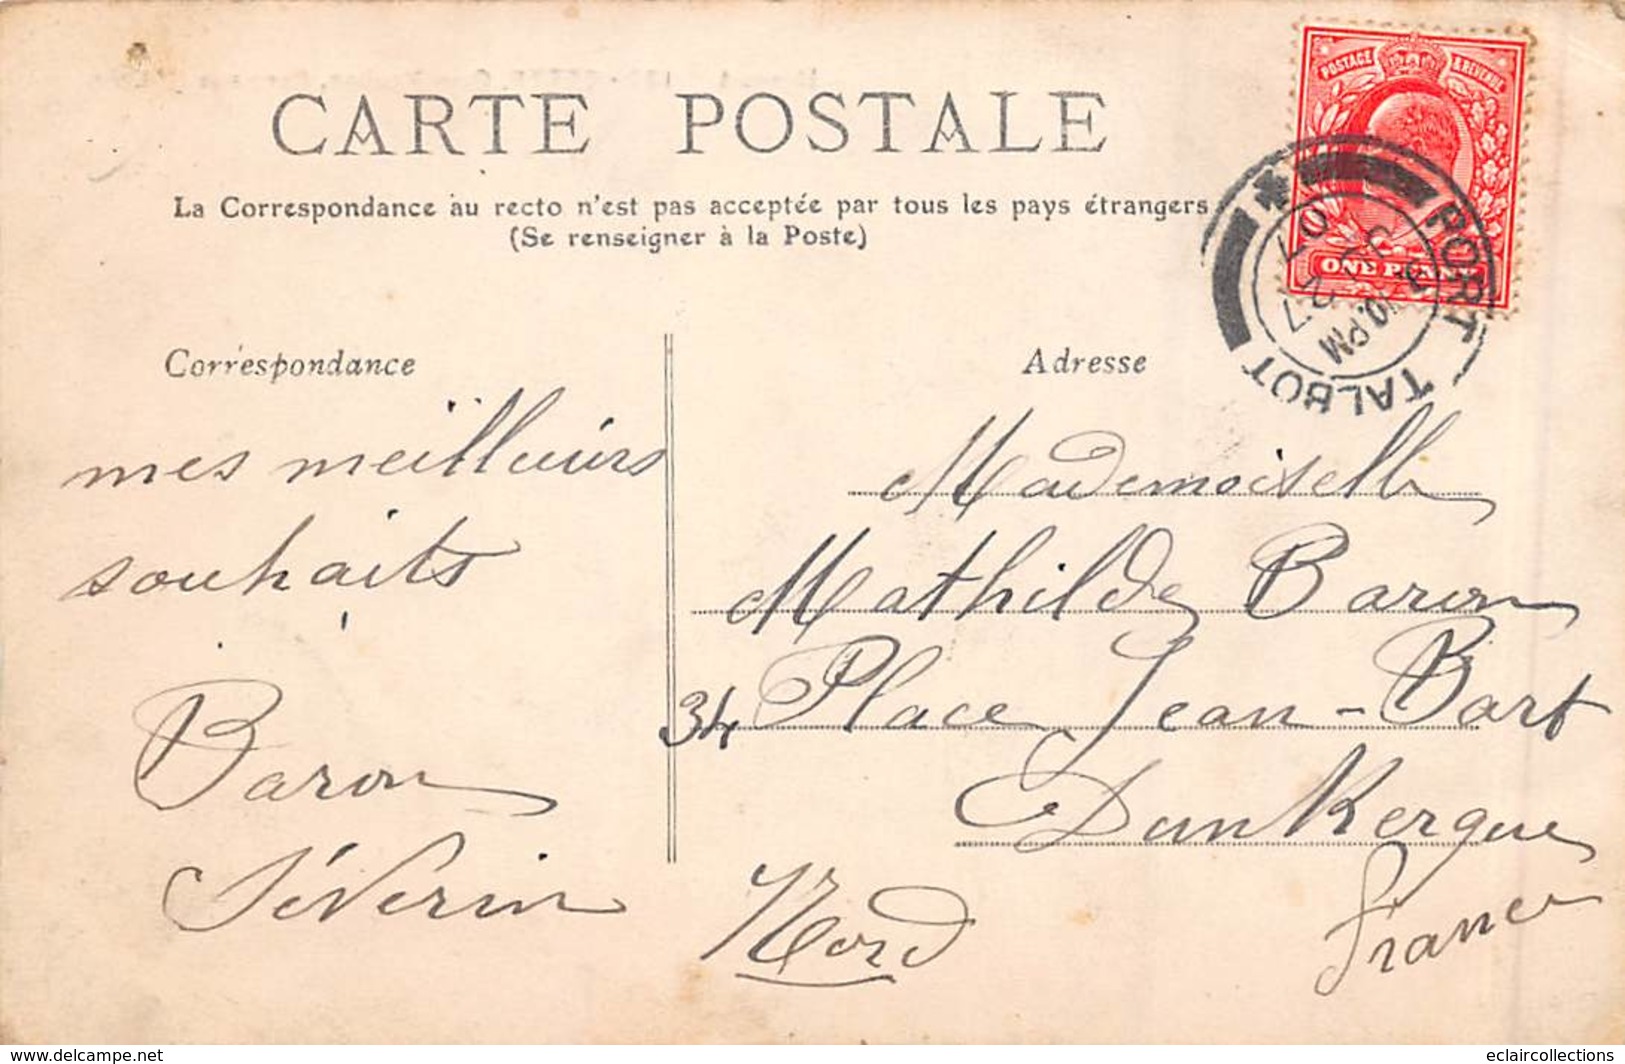 CARTE POSTALE
La Correspondance au recto n'est pas acceptée par tous les pays étrangers
(Se renseigner à la Poste)
POSTAGE & REVENUE
ONE PENNY
PORT TALBOT
10.PM
27
07
Correspondance
mes meilleurs
souhaits
Baron
Séverin
Adresse
Mademoiselle
Mathilde Baron
34 Place Jean-Bart
Dunkerque
Nord
France
www.delcampe.net
eclaircollections